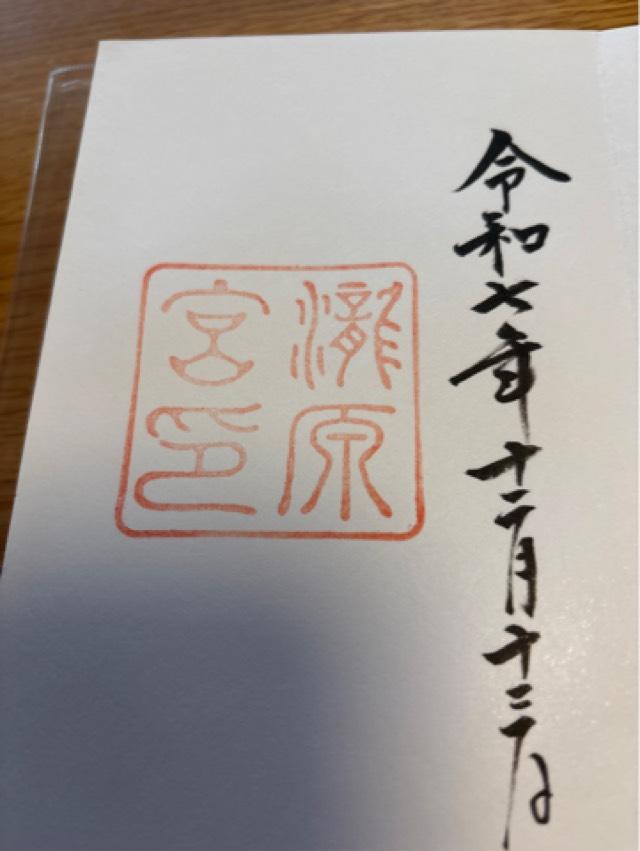 令和七年十二月十二日
瀧原
宮印